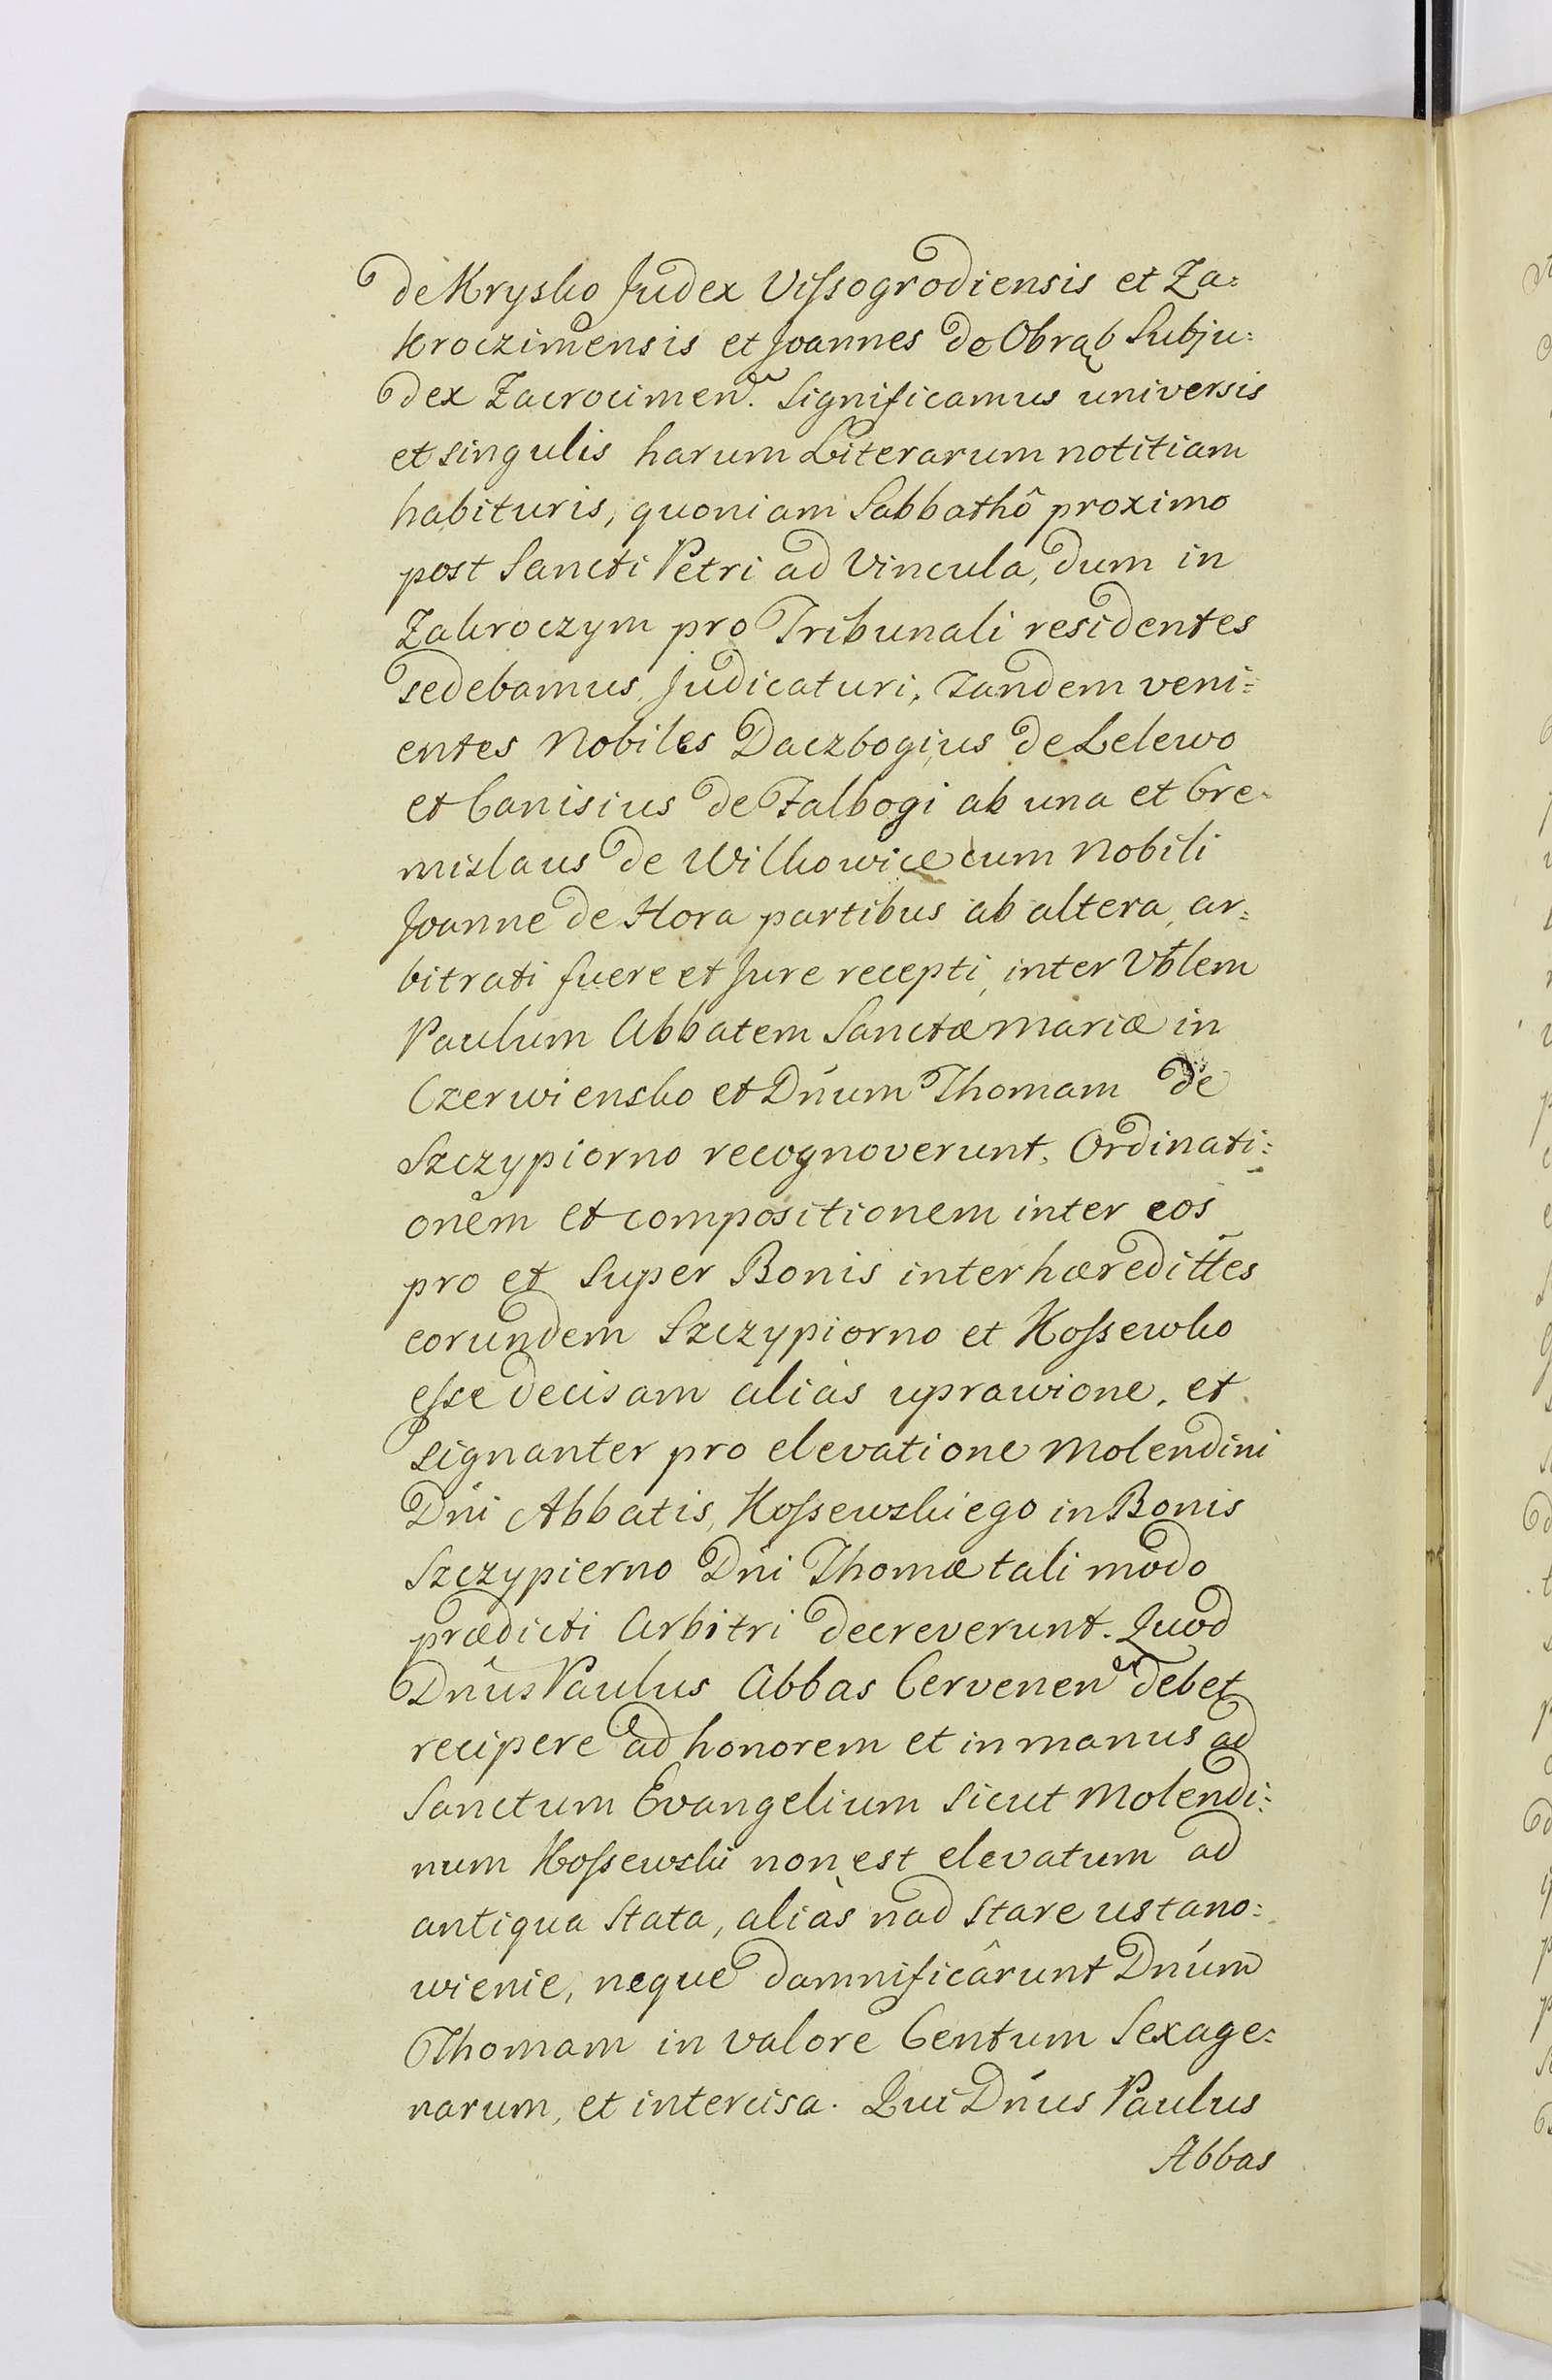 de Krysko Judex Vissogrodiensis et Za=
kroczimensis et Joannes de Obrąb Subju=
dex Zacrocimen. Significamus universis
et singulis harum Literarum notitiam
habituris, quoniam Sabbathô proximo
post Sancti Petri ad Vincula, dum in
Zakroczym pro Tribunali residentes
sedebamus, Judicaturi, tandem veni=
entes Nobiles Daczbogius de Lelewo
et Canisius de Falbogi ab una et Cre=
mislaus de Wilkowice cum Nobili
Joanne de Hora partibus ab altera, ar=
bitrati fuere et Jure recepti, inter Vblem
Paulum Abbatem Sanctæ Mariæ in
Czerwiensko et Dnum Thomam de
Szczypiorno recognoverunt, Ordinati=
onem et compositionem inter eos
pro et super Bonis inter hæredittes
eorundem Szczypiorno et Kossewko
esse decisam aliàs uprawione, et
signanter pro elevatione Molendini
Dni Abbatis, Kossewskiego in Bonis
Szczypierno Dni Thomæ tali modo
prædicti Arbitri decreverunt. Quod
Dnus Paulus Abbas Cervenen debet
recipere ad honorem et in manus ad
Sanctum Evangelium sicut Molendi=
num Kossewski non est elevatum ad
antiqua stata, aliàs nad stare ustano=
wienie, neque damnificârunt Dnum
Thomam in valore Centum Sexage=
narum, et intercisa. Qui Dnus Paulus
Abbas